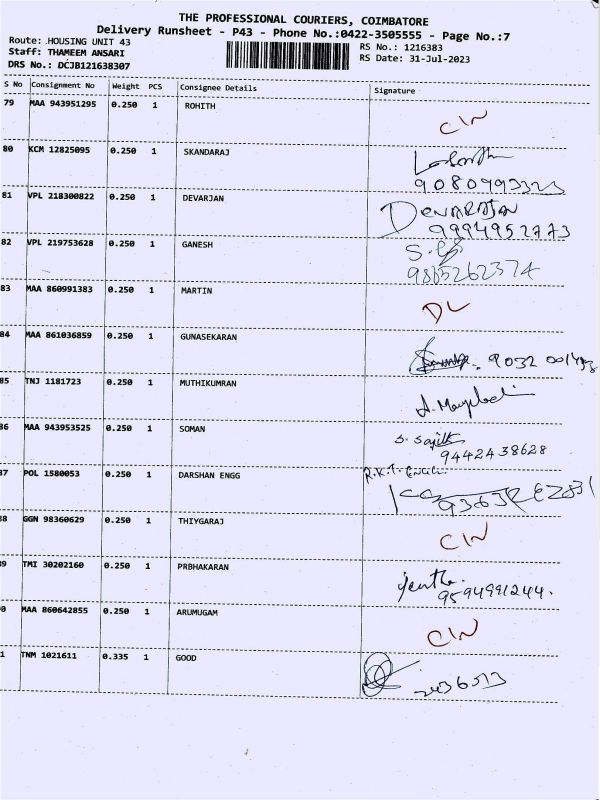 THE PROFESSIONAL COURIERS, COIMBATORE
Delivery Runsheet - P43 - Phone No.:0422-3505555 - Page No.:7
Route: .HOUSING UNIT 43
Staff: THAMEEM ANSARI
DRS No.: DCJB121638307
RS No.: 1216383
RS Date: 31-Jul-2023
S No Consignment No Weight PCS Consignee Details Signature
79 MAA 943951295 0.250 1 ROHITH CIN
80 KCM 12825095 0.250 1 SKANDARAJ
81 VPL 218300822 0.250 1 DEVARJAN DEVARAJAN
9994952773
82 VPL 219753628 0.250 1 GANESH
9865262374
83 MAA 860991383 0.250 1 MARTIN DL
84 MAA 861036859 0.250 1 GUNASEKARAN
85 TNJ 1181723 0.250 1 MUTHIKUMRAN
86 MAA 943953525 0.250 1 SOMAN S. Sajith
9442438628
87 POL 1580053 0.250 1 DARSHAN ENGG
88 GGN 98360629 0.250 1 THIYGARAJ CIN
89 TMI 30202160 0.250 1 PRBHAKARAN
9594991244.
0 MAA 860642855 0.250 1 ARUMUGAM CIN
1 TNM 1021611 0.335 1 GOOD